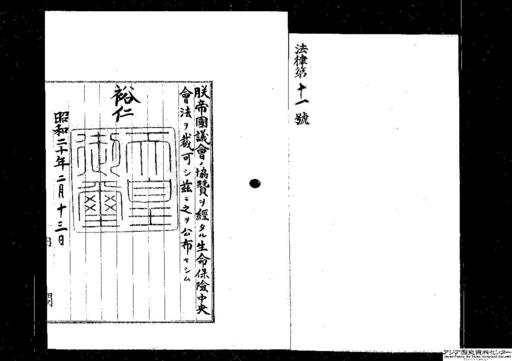 法律第十一號
朕帝國議會ノ協贊ヲ經タル生命保險中央
會法ヲ裁可シ茲ニ之ヲ公布セシム
裕仁
天皇
御璽
昭和二十年二月十三日
内閣
アジア歴史資料センター
Japan Center for Asian Historical Records